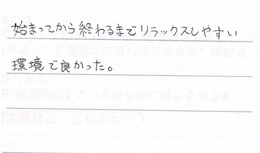 始まってから終わるまでリラックスしやすい
環境で良かった。